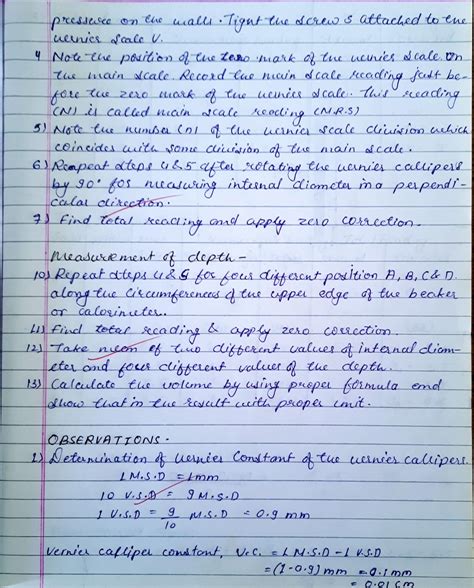 pressure on the walls. Tignt the screw S attached to the
vernier scale V.
4 Note the position of the zero mark of the vernier scale on
the main scale. Record the main scale reading just be-
fore the zero mark of the vernier scale. This reading
(N) is called main scale reading (M.R.S)
5) Note the number (n) of the vernier scale division which
coincides with some division of the main scale.
6) Reapeat steps 4 & 5 after rotating the vernier callipers
by 90° for measuring internal diameter in a perpendi-
cular direction.
7) Find total reading and apply zero correction.
Measurement of depth -
10) Repeat steps 4 & 5 for four different position A, B, C & D
along the circumferences of the upper edge of the beaker
or calorimeter.
11) Find total reading & apply zero correction.
12) Take mean of two different values of internal diam-
eter and four different values of the depth.
13) Calculate the volume by using proper formula and
show that in the result with proper unit.
OBSERVATIONS.
1) Determination of vernier Constant of the vernier callipers.
1 M.S.D = 1mm
10 V.S.D = 9 M.S.D
1 V.S.D = 9/10 M.S.D = 0.9 mm
Vernier calliper constant, V.C. = 1 M.S.D - 1 V.S.D
= (1-0.9) mm = 0.1mm
= 0.01 cm